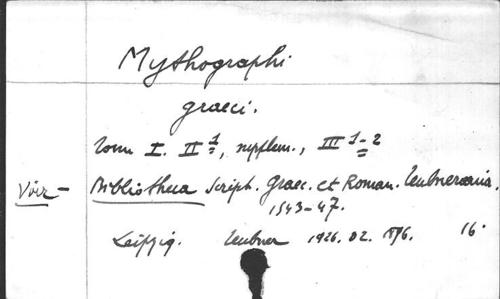 Mythographi
graeci.
Tom I. II 1, supplem., III 1-2
Voir - Bibliotheca Script. Graec. et Roman. Teubneriana.
1543-47.
Leipzig. Teubner 1926. 02. 896. 16°